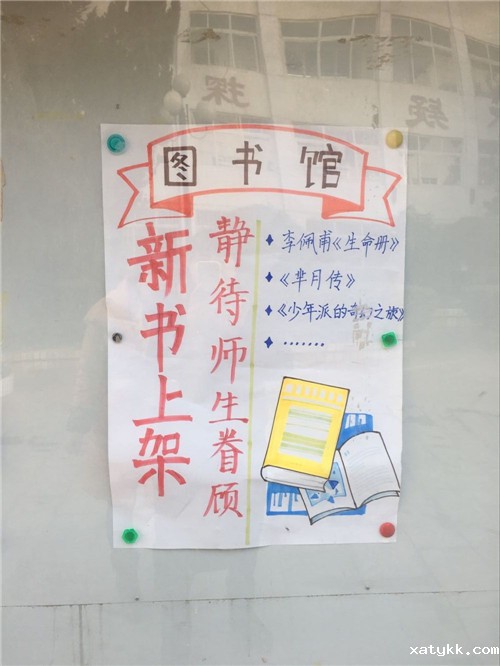 图书馆
新书上架
静待师生眷顾
李佩甫《生命册》
《芈月传》
《少年派的奇幻之旅》
.......
探 疑
xatykk.com